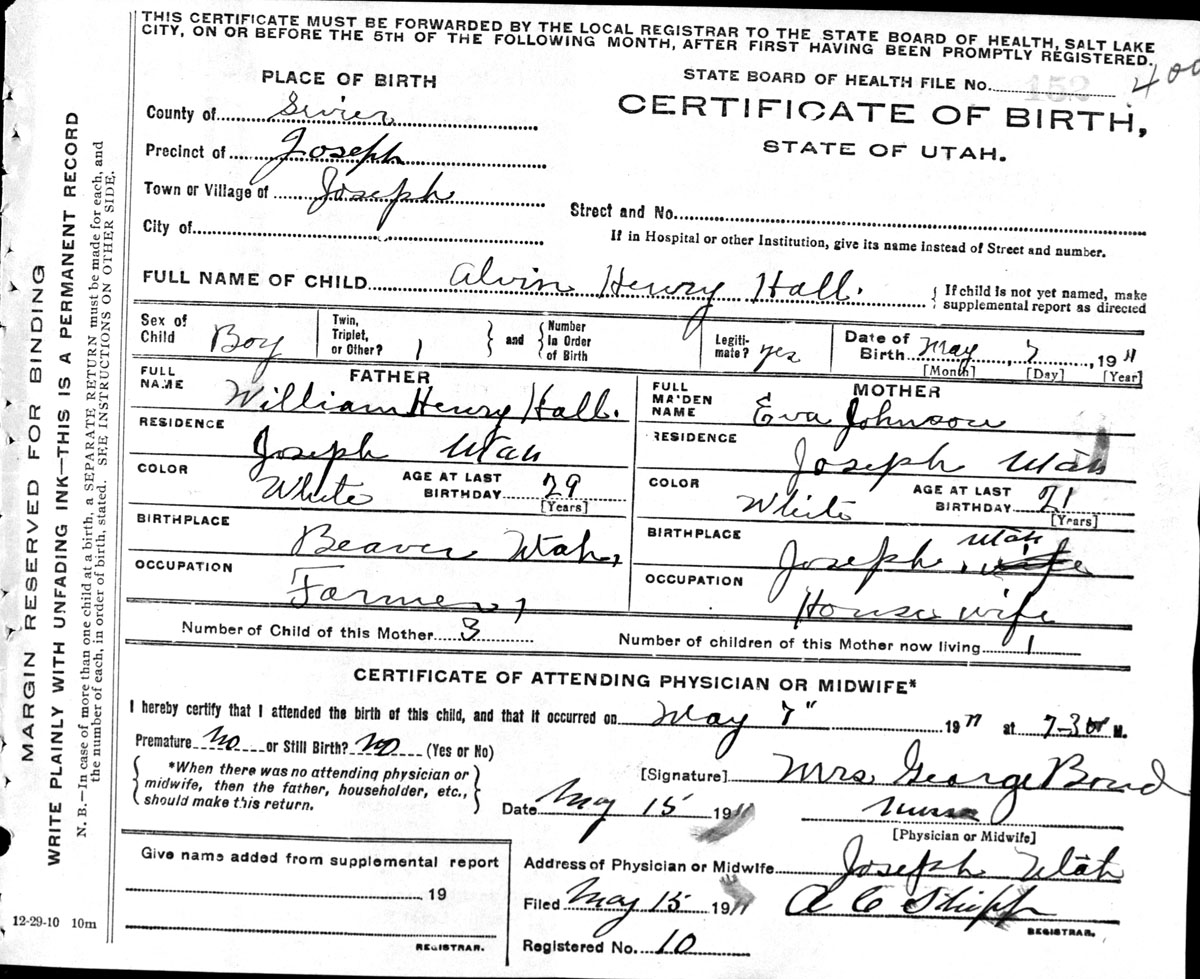 THIS CERTIFICATE MUST BE FORWARDED BY THE LOCAL REGISTRAR TO THE STATE BOARD OF HEALTH, SALT LAKE
CITY, ON OR BEFORE THE 5TH OF THE FOLLOWING MONTH, AFTER FIRST HAVING BEEN PROMPTLY REGISTERED.
400
PLACE OF BIRTH
STATE BOARD OF HEALTH FILE No. 152
County of Sivier
CERTIFICATE OF BIRTH,
STATE OF UTAH.
Precinct of Joseph
Town or Village of Joseph
Street and No.
City of
If in Hospital or other Institution, give its name instead of Street and number.
FULL NAME OF CHILD Alvin Henry Hall. { If child is not yet named, make
supplemental report as directed
Sex of Child Boy
Twin, Triplet, or Other? 1 } and { Number In Order of Birth
Legiti- mate? yes
Date of Birth May, 7, 1911
[Month] [Day] [Year]
FATHER
FULL NAME William Henry Hall.
RESIDENCE Joseph Utah
COLOR White AGE AT LAST BIRTHDAY 29
[Years]
BIRTHPLACE Beaver Utah,
OCCUPATION Farmer,
MOTHER
FULL MAIDEN NAME Eva Johnson
RESIDENCE Joseph Utah
COLOR White AGE AT LAST BIRTHDAY 21
[Years]
BIRTHPLACE Joseph, Utah
OCCUPATION House wife
Number of Child of this Mother 3
Number of children of this Mother now living 1
CERTIFICATE OF ATTENDING PHYSICIAN OR MIDWIFE*
I hereby certify that I attended the birth of this child, and that it occurred on May 7" 1911 at 7-30 M.
Premature No or Still Birth? No (Yes or No)
{ *When there was no attending physician or
midwife, then the father, householder, etc.,
should make this return. }
[Signature] Mrs George Bond
Date May 15 1911
Nurse
[Physician or Midwife]
Give name added from supplemental report
19
REGISTRAR.
Address of Physician or Midwife Joseph Utah
Filed May 15 1911 A C Shipp
REGISTRAR.
Registered No. 10
12-29-10 10m
MARGIN RESERVED FOR BINDING
WRITE PLAINLY WITH UNFADING INK—THIS IS A PERMANENT RECORD
N. B.—In case of more than one child at a birth, a SEPARATE RETURN must be made for each, and
the number of each, in order of birth, stated. SEE INSTRUCTIONS ON OTHER SIDE.